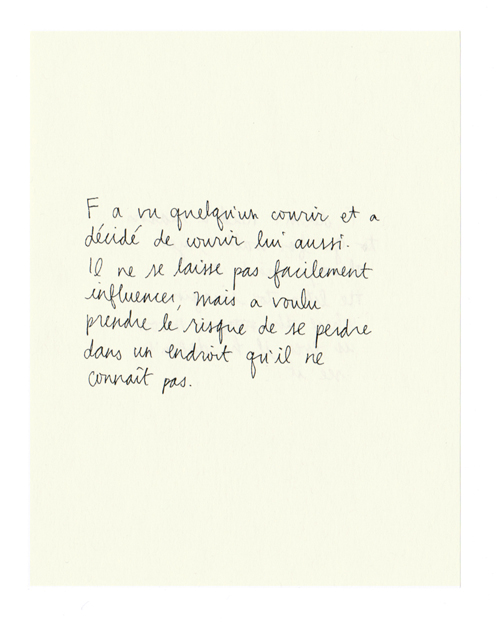 F a vu quelqu'un courir et a
décidé de courir lui aussi.
Il ne se laisse pas facilement
influencer, mais a voulu
prendre le risque de se perdre
dans un endroit qu'il ne
connaît pas.